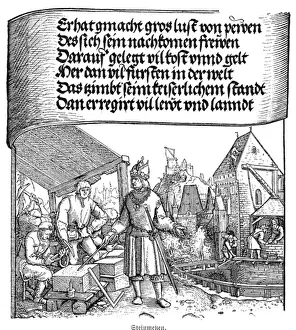 Er hat gmacht gros lust von pewen
Des sich sein nachkomen frewen
Darauf gelegt vil kost vnnd gelt
Mer dan vil fursten in der welt
Das zimbt seim keiserlichem standt
Dan er regirt vil lewt vnd lanndt
Steinmetzen.